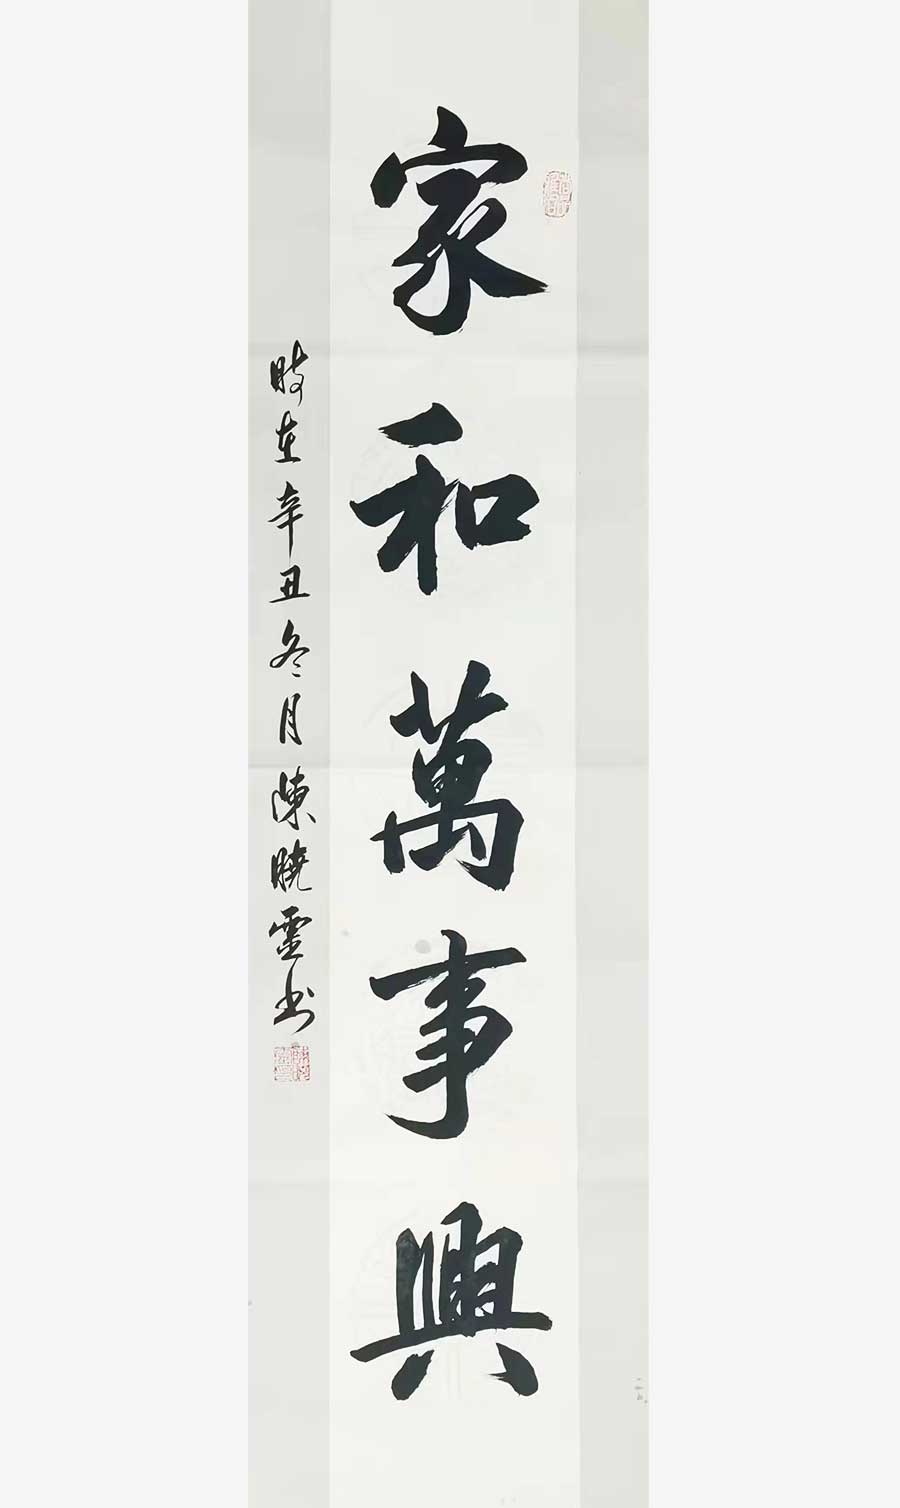 家和萬事興
時在辛丑冬月陳曉雲书